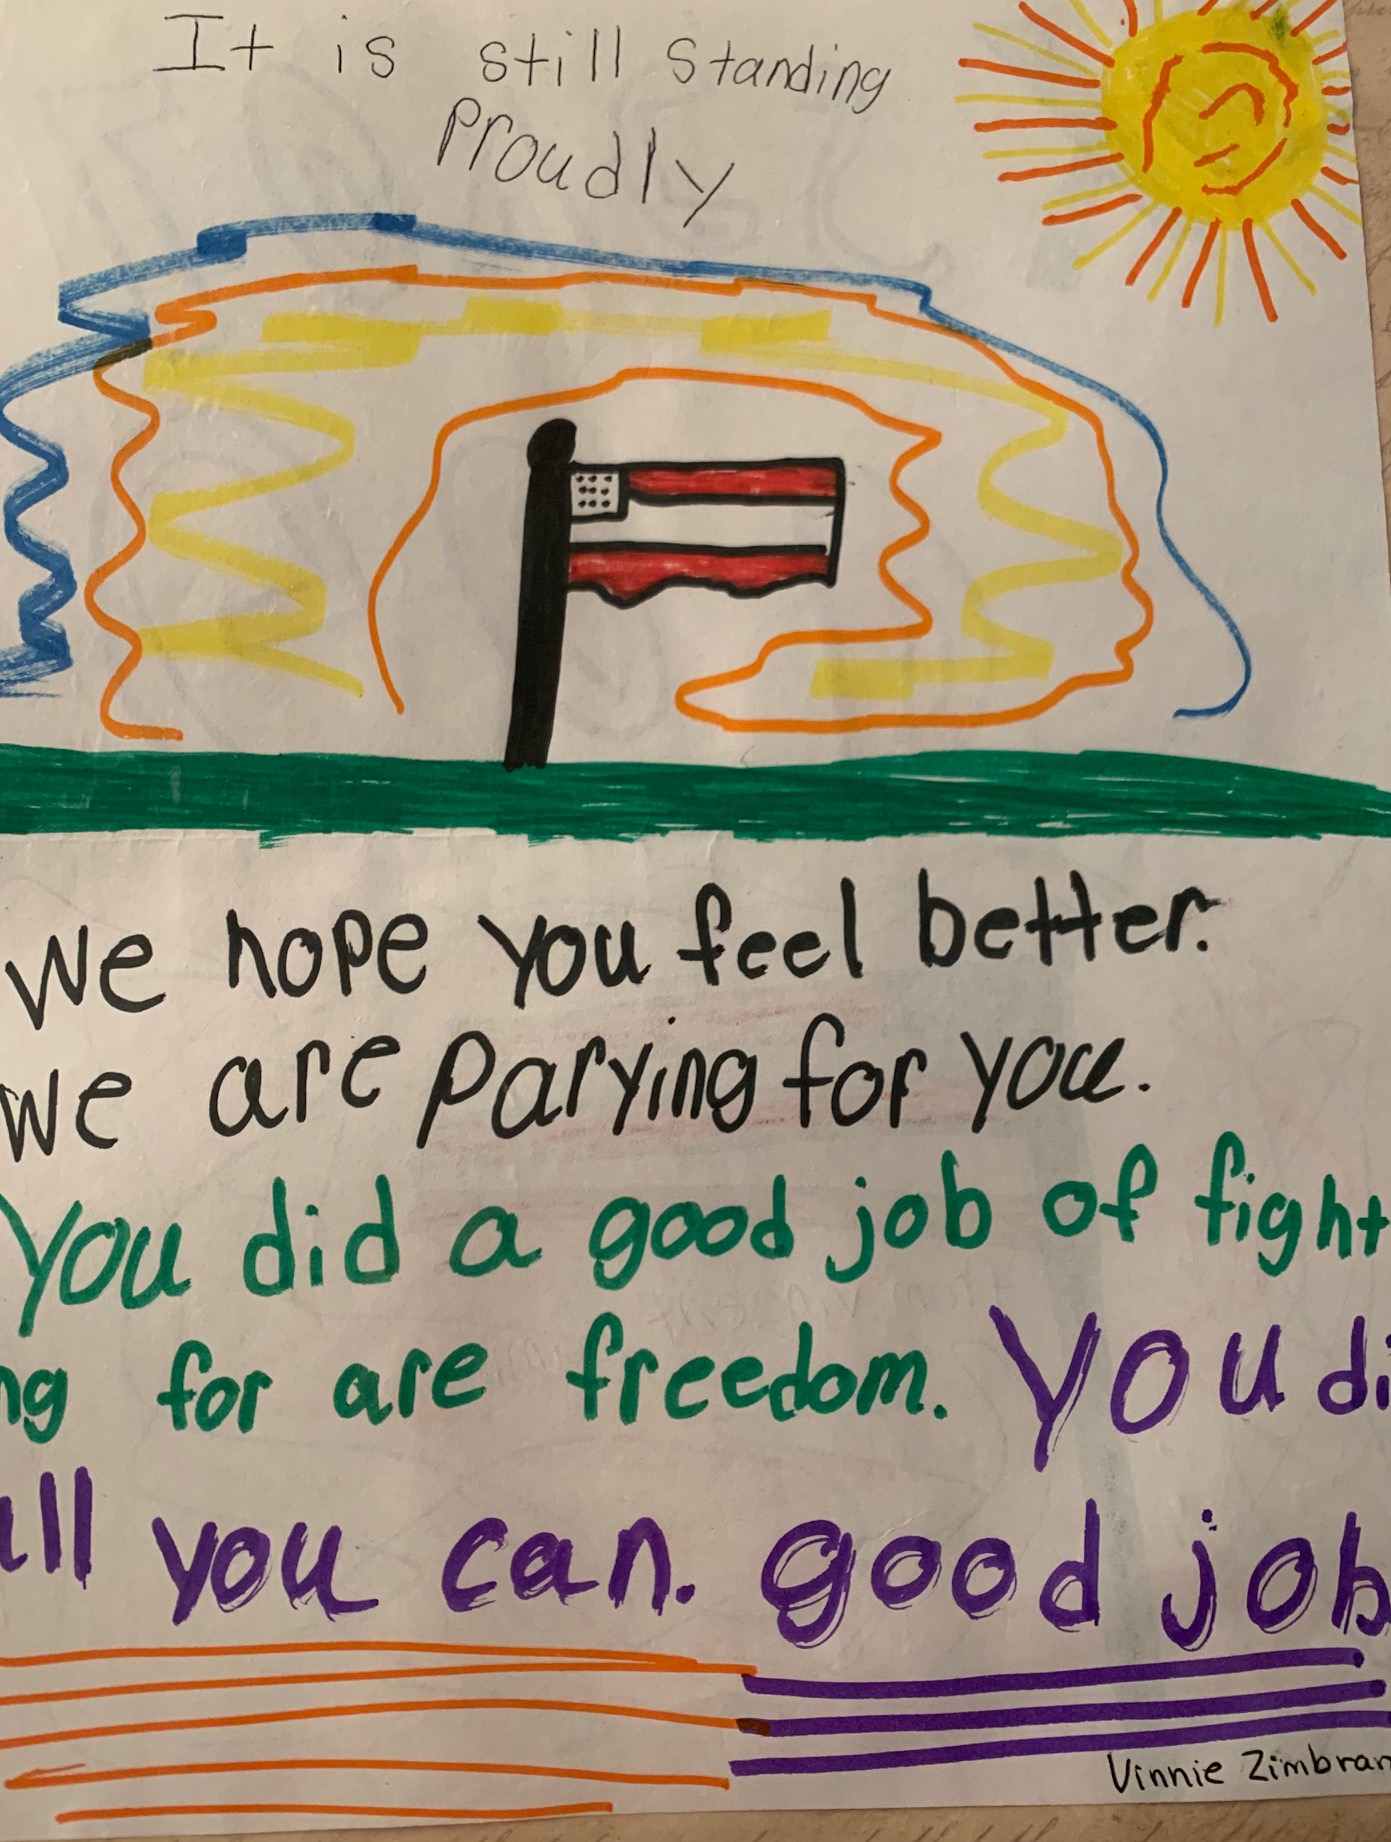 It is still standing
Proudly
We hope you feel better.
We are Parying for you.
You did a good job of fight
ng for are freedom. You di
all you can. good job
Vinnie Zimbran